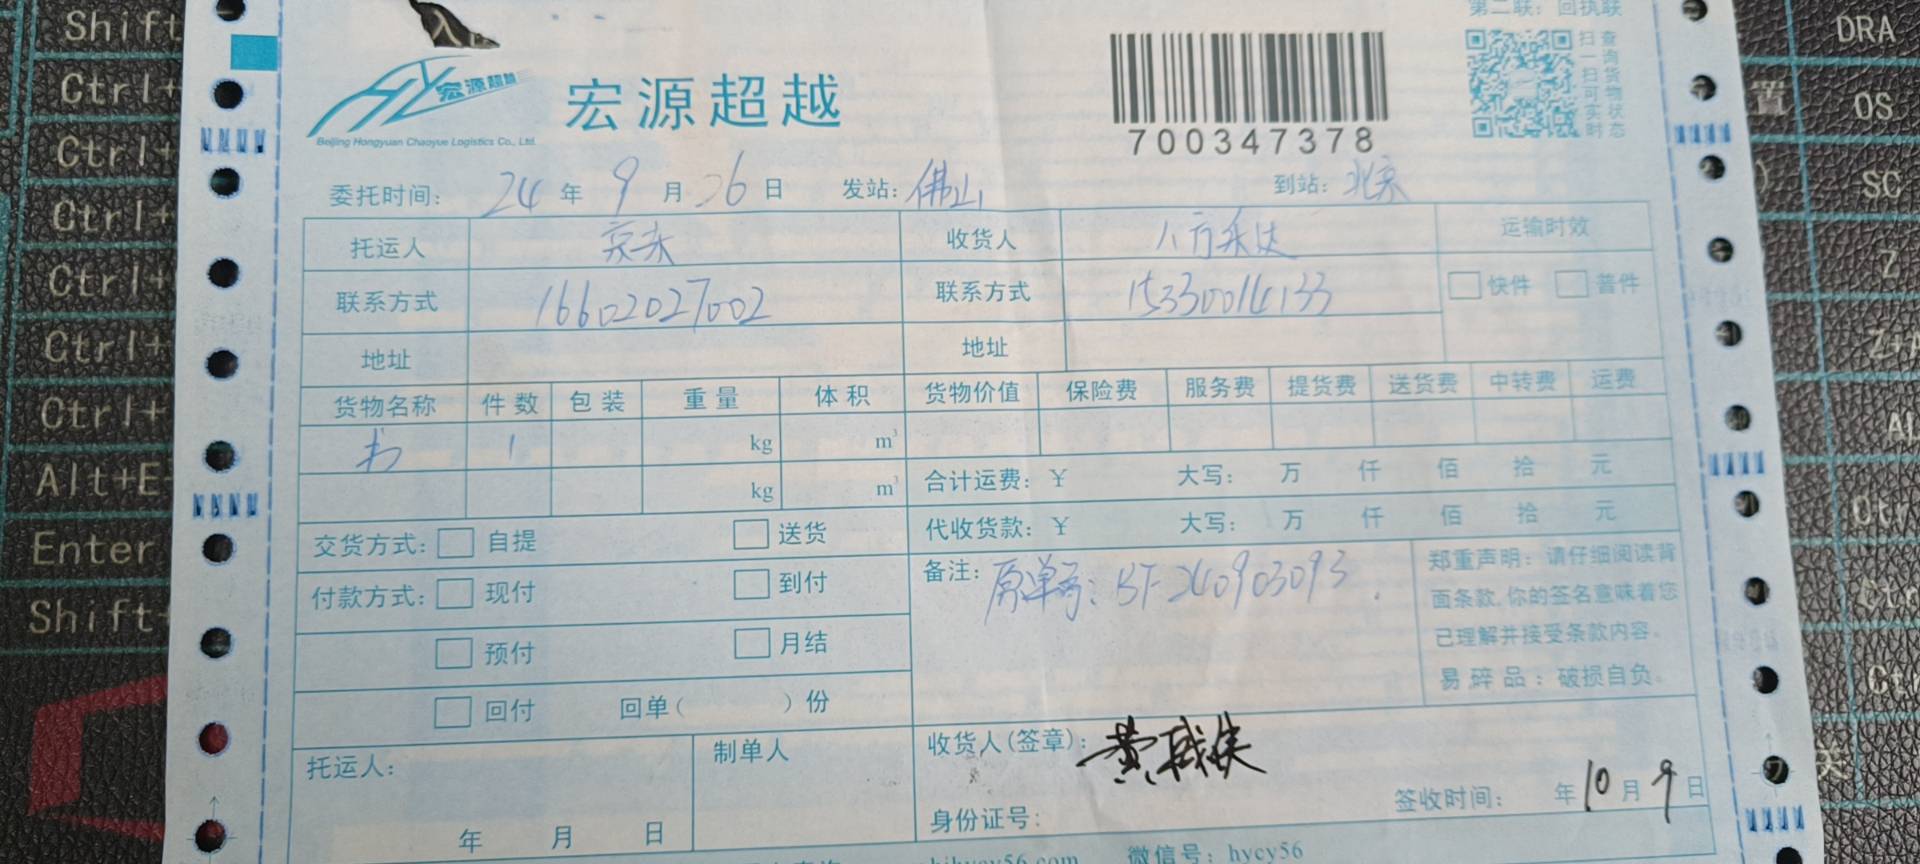 第二联：回执联
宏源超越
宏源超越
Beijing Hongyuan Chaoyue Logistics Co., Ltd.
700347378
扫一扫可实时
查询货物状态
委托时间： 24 年 9 月 26 日 发站： 佛山 到站： 北京
托运人 收货人 运输时效
联系方式 16602027002 联系方式 15330014133 快件 普件
地址 地址
货物名称 件数 包装 重量 体积 货物价值 保险费 服务费 提货费 送货费 中转费 运费
书 1 kg m³
kg m³ 合计运费：¥ 大写： 万 仟 佰 拾 元
交货方式： 自提 送货 代收货款：¥ 大写： 万 仟 佰 拾 元
付款方式： 现付 到付 备注： 原单号：BT-240903093.
预付 月结
回付 回单（ ）份
郑重声明：请仔细阅读背
面条款,你的签名意味着您
已理解并接受条款内容。
易碎品：破损自负。
托运人： 制单人 收货人(签章)：
年 月 日 身份证号： 签收时间： 年 10 月 9 日
微信号：hycy56
Shift
Ctrl+
Ctrl+
Ctrl+
Ctrl+
Ctrl+
Ctrl+
Alt+E
Enter
Shift+
DRA
置 OS
SC
Z
Z+A
AL
Ctr